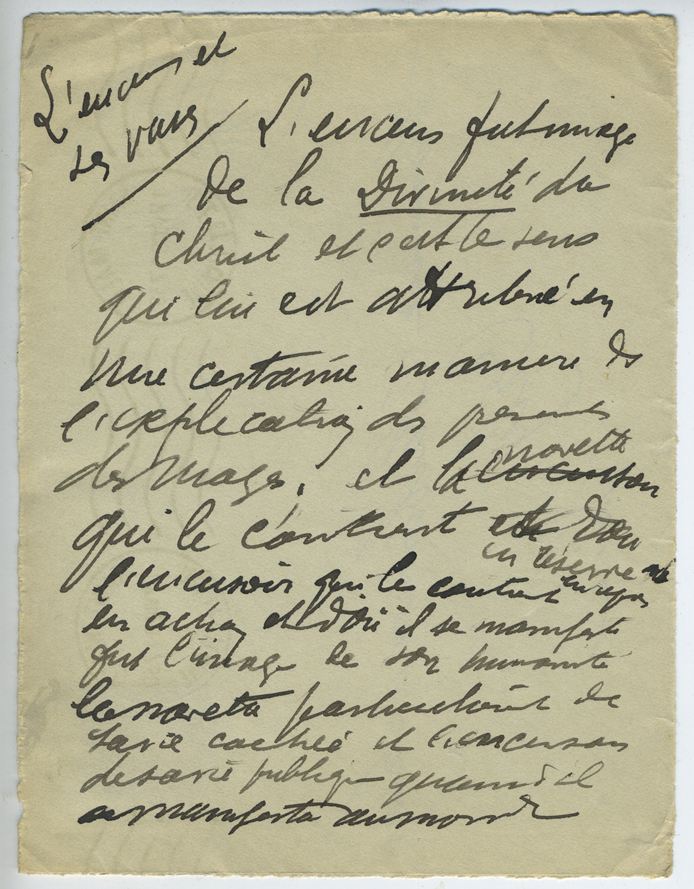 L'encens et
ses vases
L'encens fut image
de la Divinité du
Christ et c'est le sens
qui lui est attribué en
une certaine manière ds
l'explication des présents
des Mages, et la navette
l'encensoir
qui le contient
en réserve
l'encensoir qui le contient
en action et d'où il se manifeste
fut l'image de son humanité
la navette particulièrt de
sa vie cachée et l'encensoir
de sa vie publique quand il
se manifesta au monde